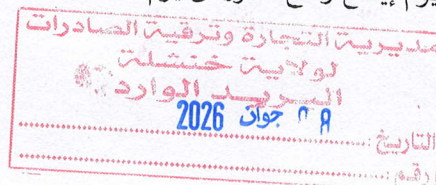 مديرية التجارة وترقية الصادرات
لولاية خنشلة
البريد الوارد
08 جوان 2026
التاريخ:
رقم: